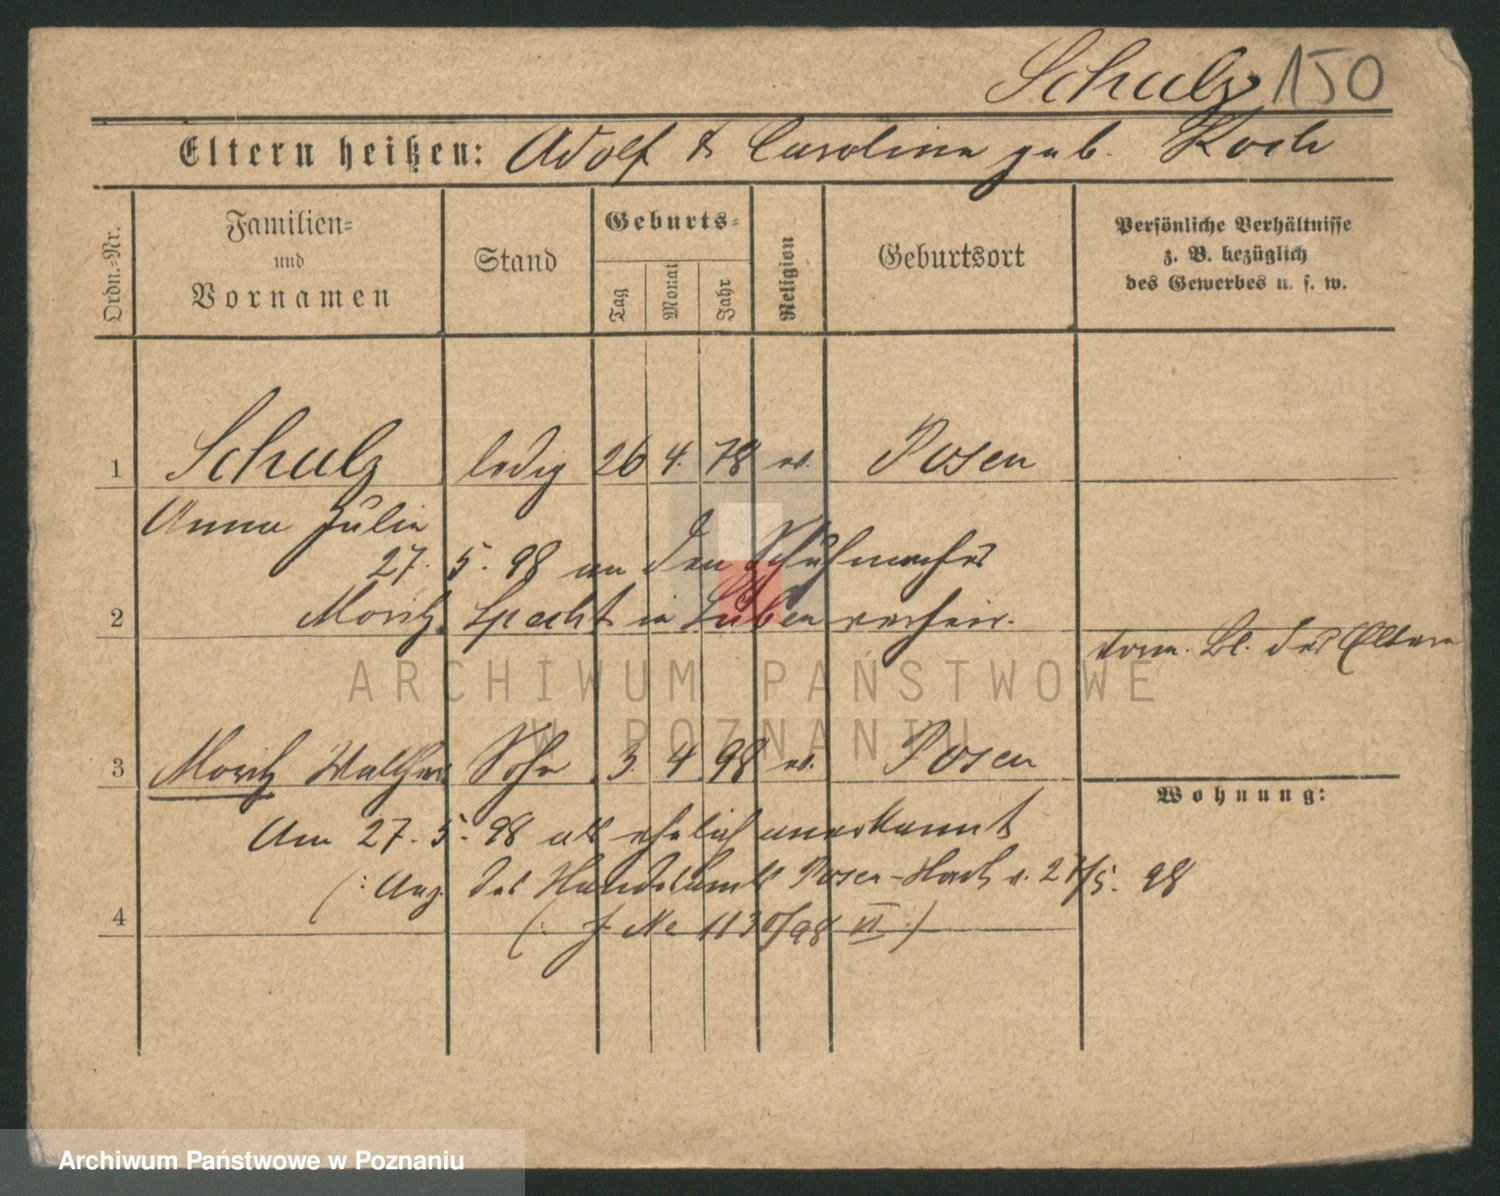 Schulz 150
Eltern heißen: Adolf & Caroline geb. Koch
Ordn.-Nr.
Familien-
und
Vornamen
Stand
Geburts-
Tag
Monat
Jahr
Religion
Geburtsort
Persönliche Verhältnisse
z. B. bezüglich
des Gewerbes u. s. w.
1 Schulz ledig 26 4. 78 ev. Posen
Anna Julie
27. 5. 98 an den Schuhmacher
2 Moritz Specht in Lüben verheir.
vorm. Bl. der Eltern
3 Moritz Walther Sohn 3. 4 98 ev. Posen
Wohnung:
Am 27. 5. 98 als ehelich anerkannt
(: Anz. des Standesamts Posen- v. 27/5. 98
4 (: J. No 1130/98 VI :)
ARCHIWUM PAŃSTWOWE
W POZNANIU
Archiwum Państwowe w Poznaniu